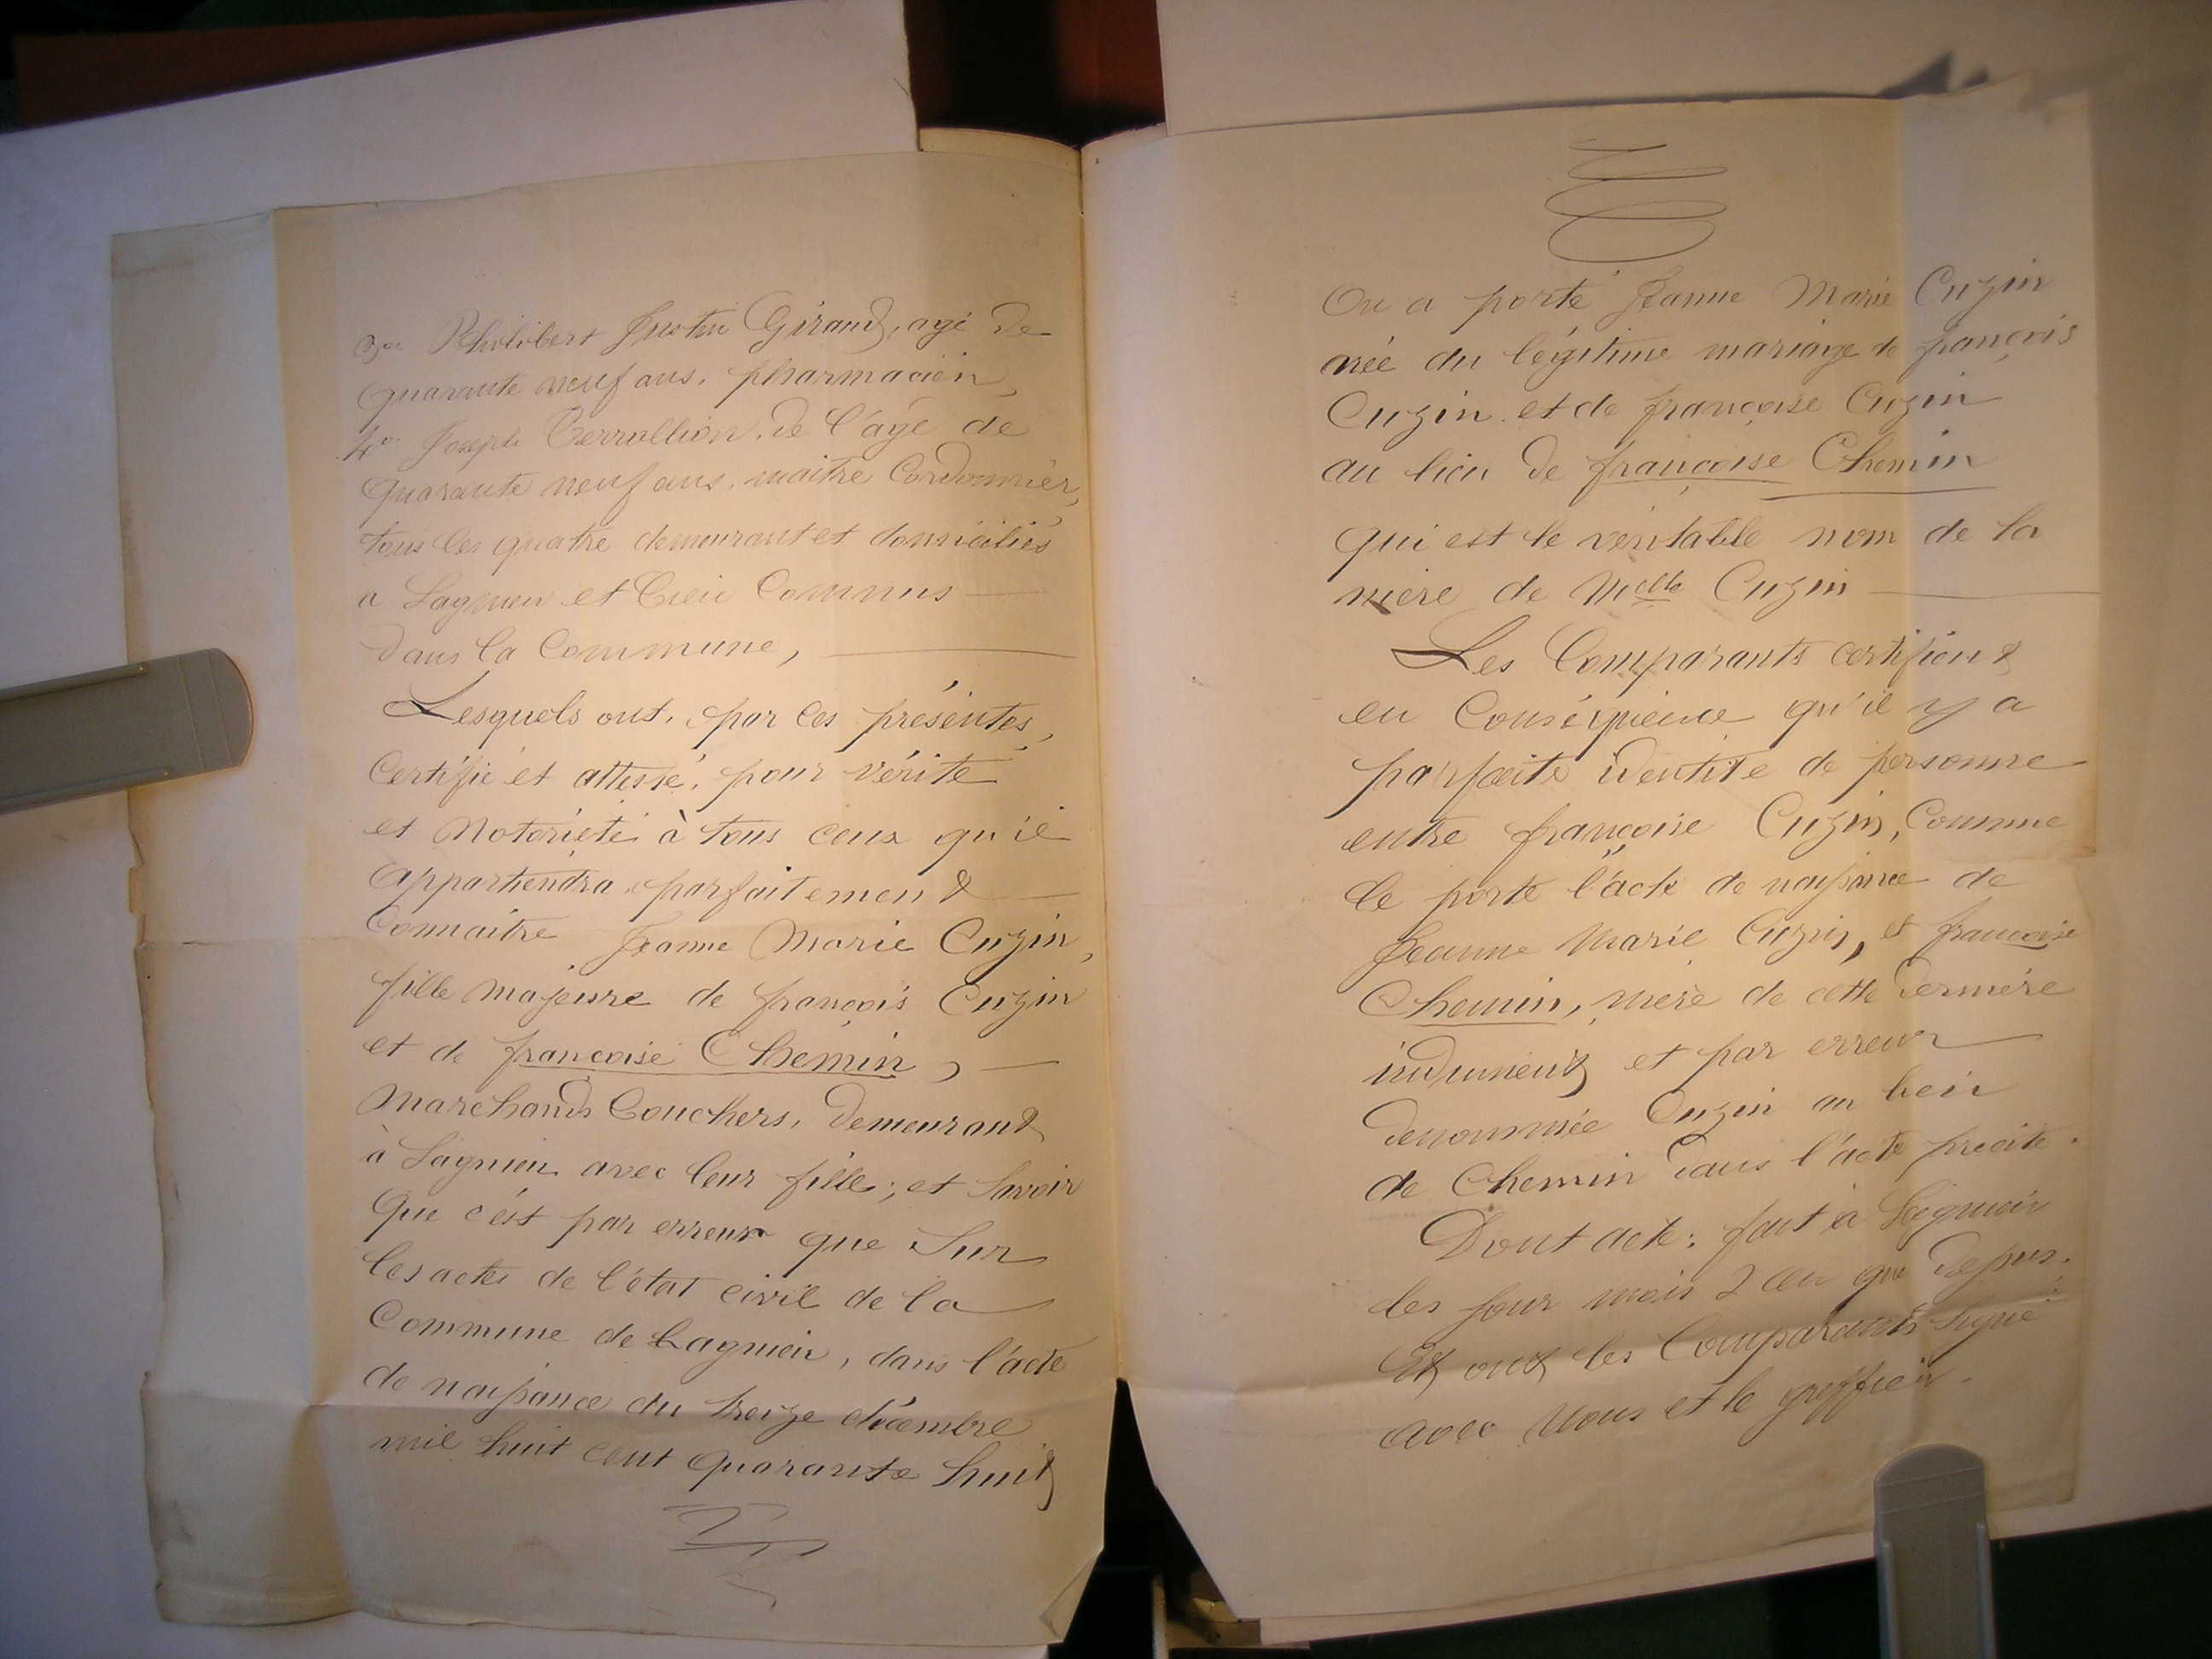 3o. Philibert Justin Giraud, agé de
quarante neuf ans, pharmacien,
4o. Joseph Verrullion, de l'âge de
quarante neuf ans, maitre Cordonnier,
tous les quatre demeurant et domiciliés
a Lagnieu et bien Connus
dans la Commune,
Lesquels ont, par ces présentes,
Certifié et attesté, pour vérité
et Notorieté à tous ceux qu'il
appartiendra, parfaitement
Connaitre Jeanne Marie Cuzin,
fille majeure de françois Cuzin
et de françoise Chemin,
Marchands Bouchers, demeurant
à Lagnieu avec leur fille; et savoir
que c'est par erreur que Sur
les actes de l'état civil de la
Commune de Lagnieu, dans l'acte
de naissance du treize décembre
mil huit cent quarante huit
On a porté Jeanne Marie Cuzin
née du légitime mariage de françois
Cuzin et de françoise Cuzin
au lieu de françoise Chemin
qui est le véritable nom de la
mère de Melle Cuzin
Les Comparants certifient
en Conséquence qu'il y a
parfaite identité de personne
entre françoise Cuzin, Comme
le porte l'acte de naissance de
Jeanne Marie Cuzin, et françoise
Chemin, mère de cette dernière
indument et par erreur
denommée Cuzin au lieu
de Chemin dans l'acte précité.
Dont acte: fait à Lagnieu
les jour mois & an que dessus.
Et ont les Comparants signé
avec Nous et le greffier.